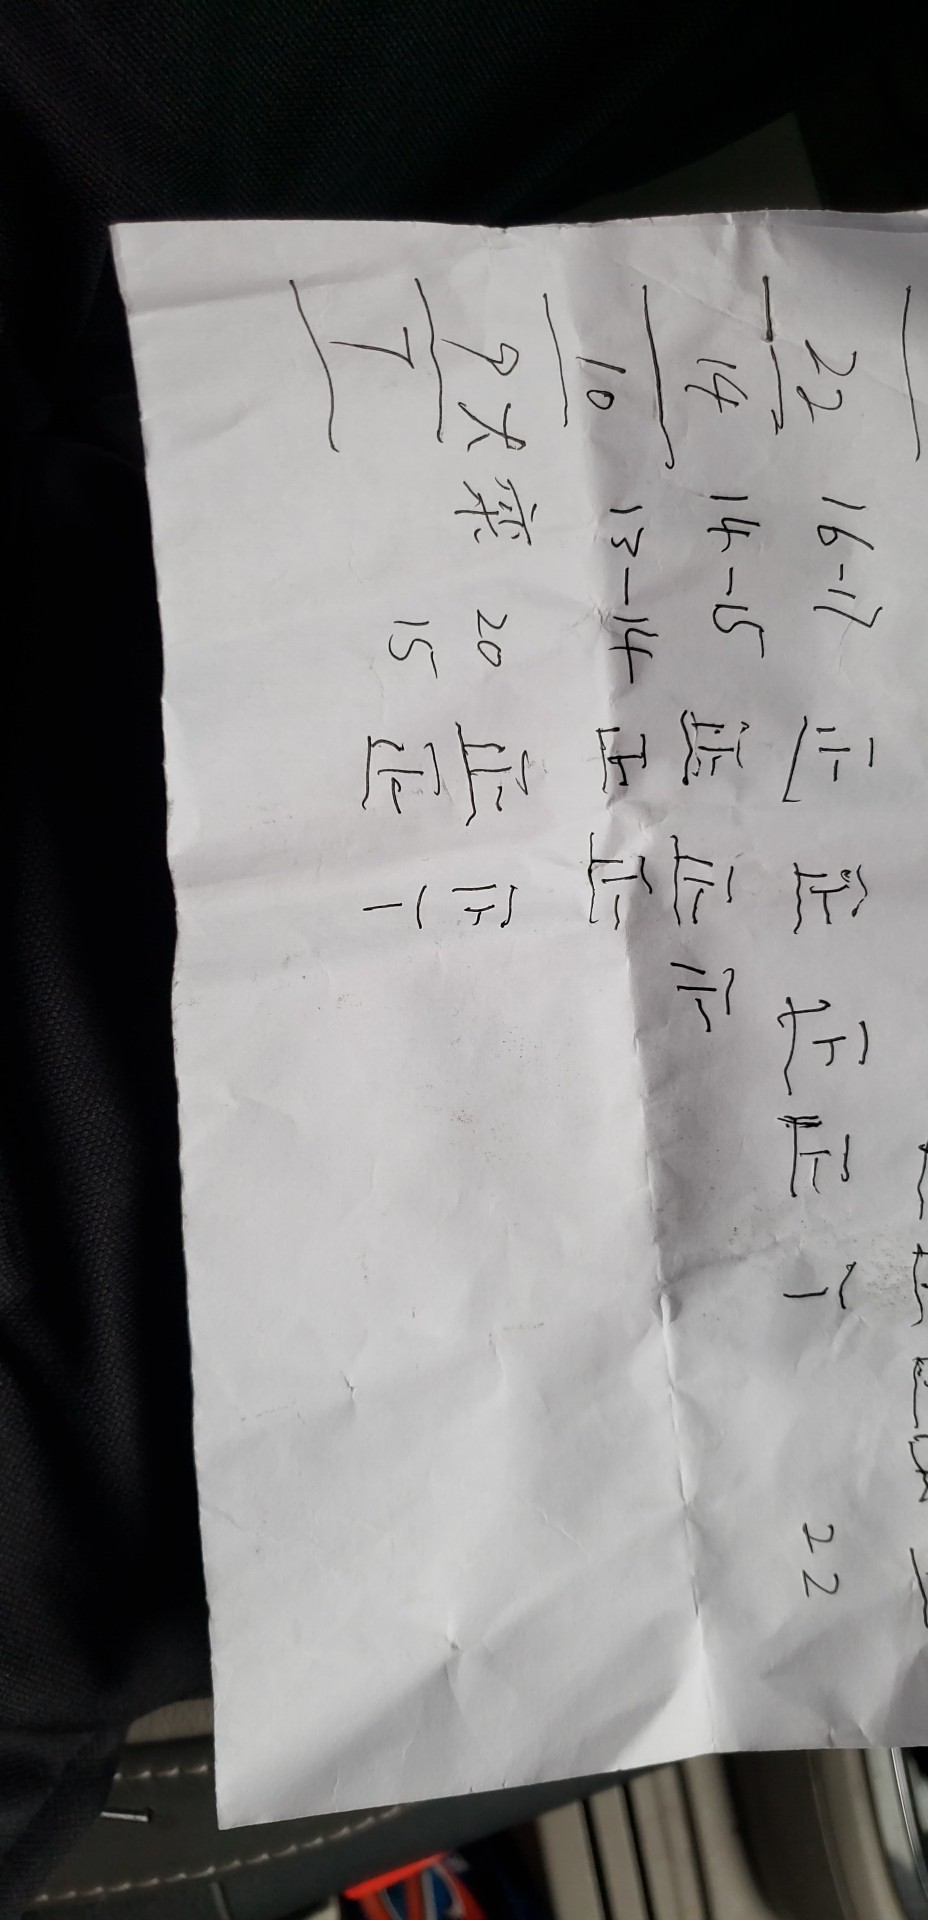 22 16-17 正 正 正 正 丅 22
14 14-15 正 正
10 13-14 正 正
9 大 菜 20 正
7 15 正 丅